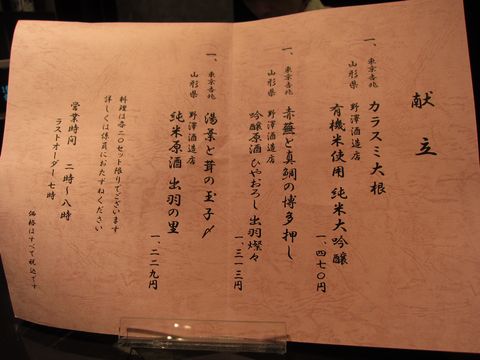 献立
一、東京吉兆 カラスミ大根
山形県 野澤酒造店
有機米使用 純米大吟醸
一、四七〇円
一、東京吉兆 赤蕪と真鯛の博多押し
山形県 野澤酒造店
吟醸原酒 ひやおろし 出羽燦々
一、三一三円
一、東京吉兆 湯葉と茸の玉子〆
山形県 野澤酒造店
純米原酒 出羽の里
一、二二九円
料理は各二〇セット限りでございます
詳しくは係員におたずねください
営業時間 二時〜八時
ラストオーダー 七時
価格はすべて税込です